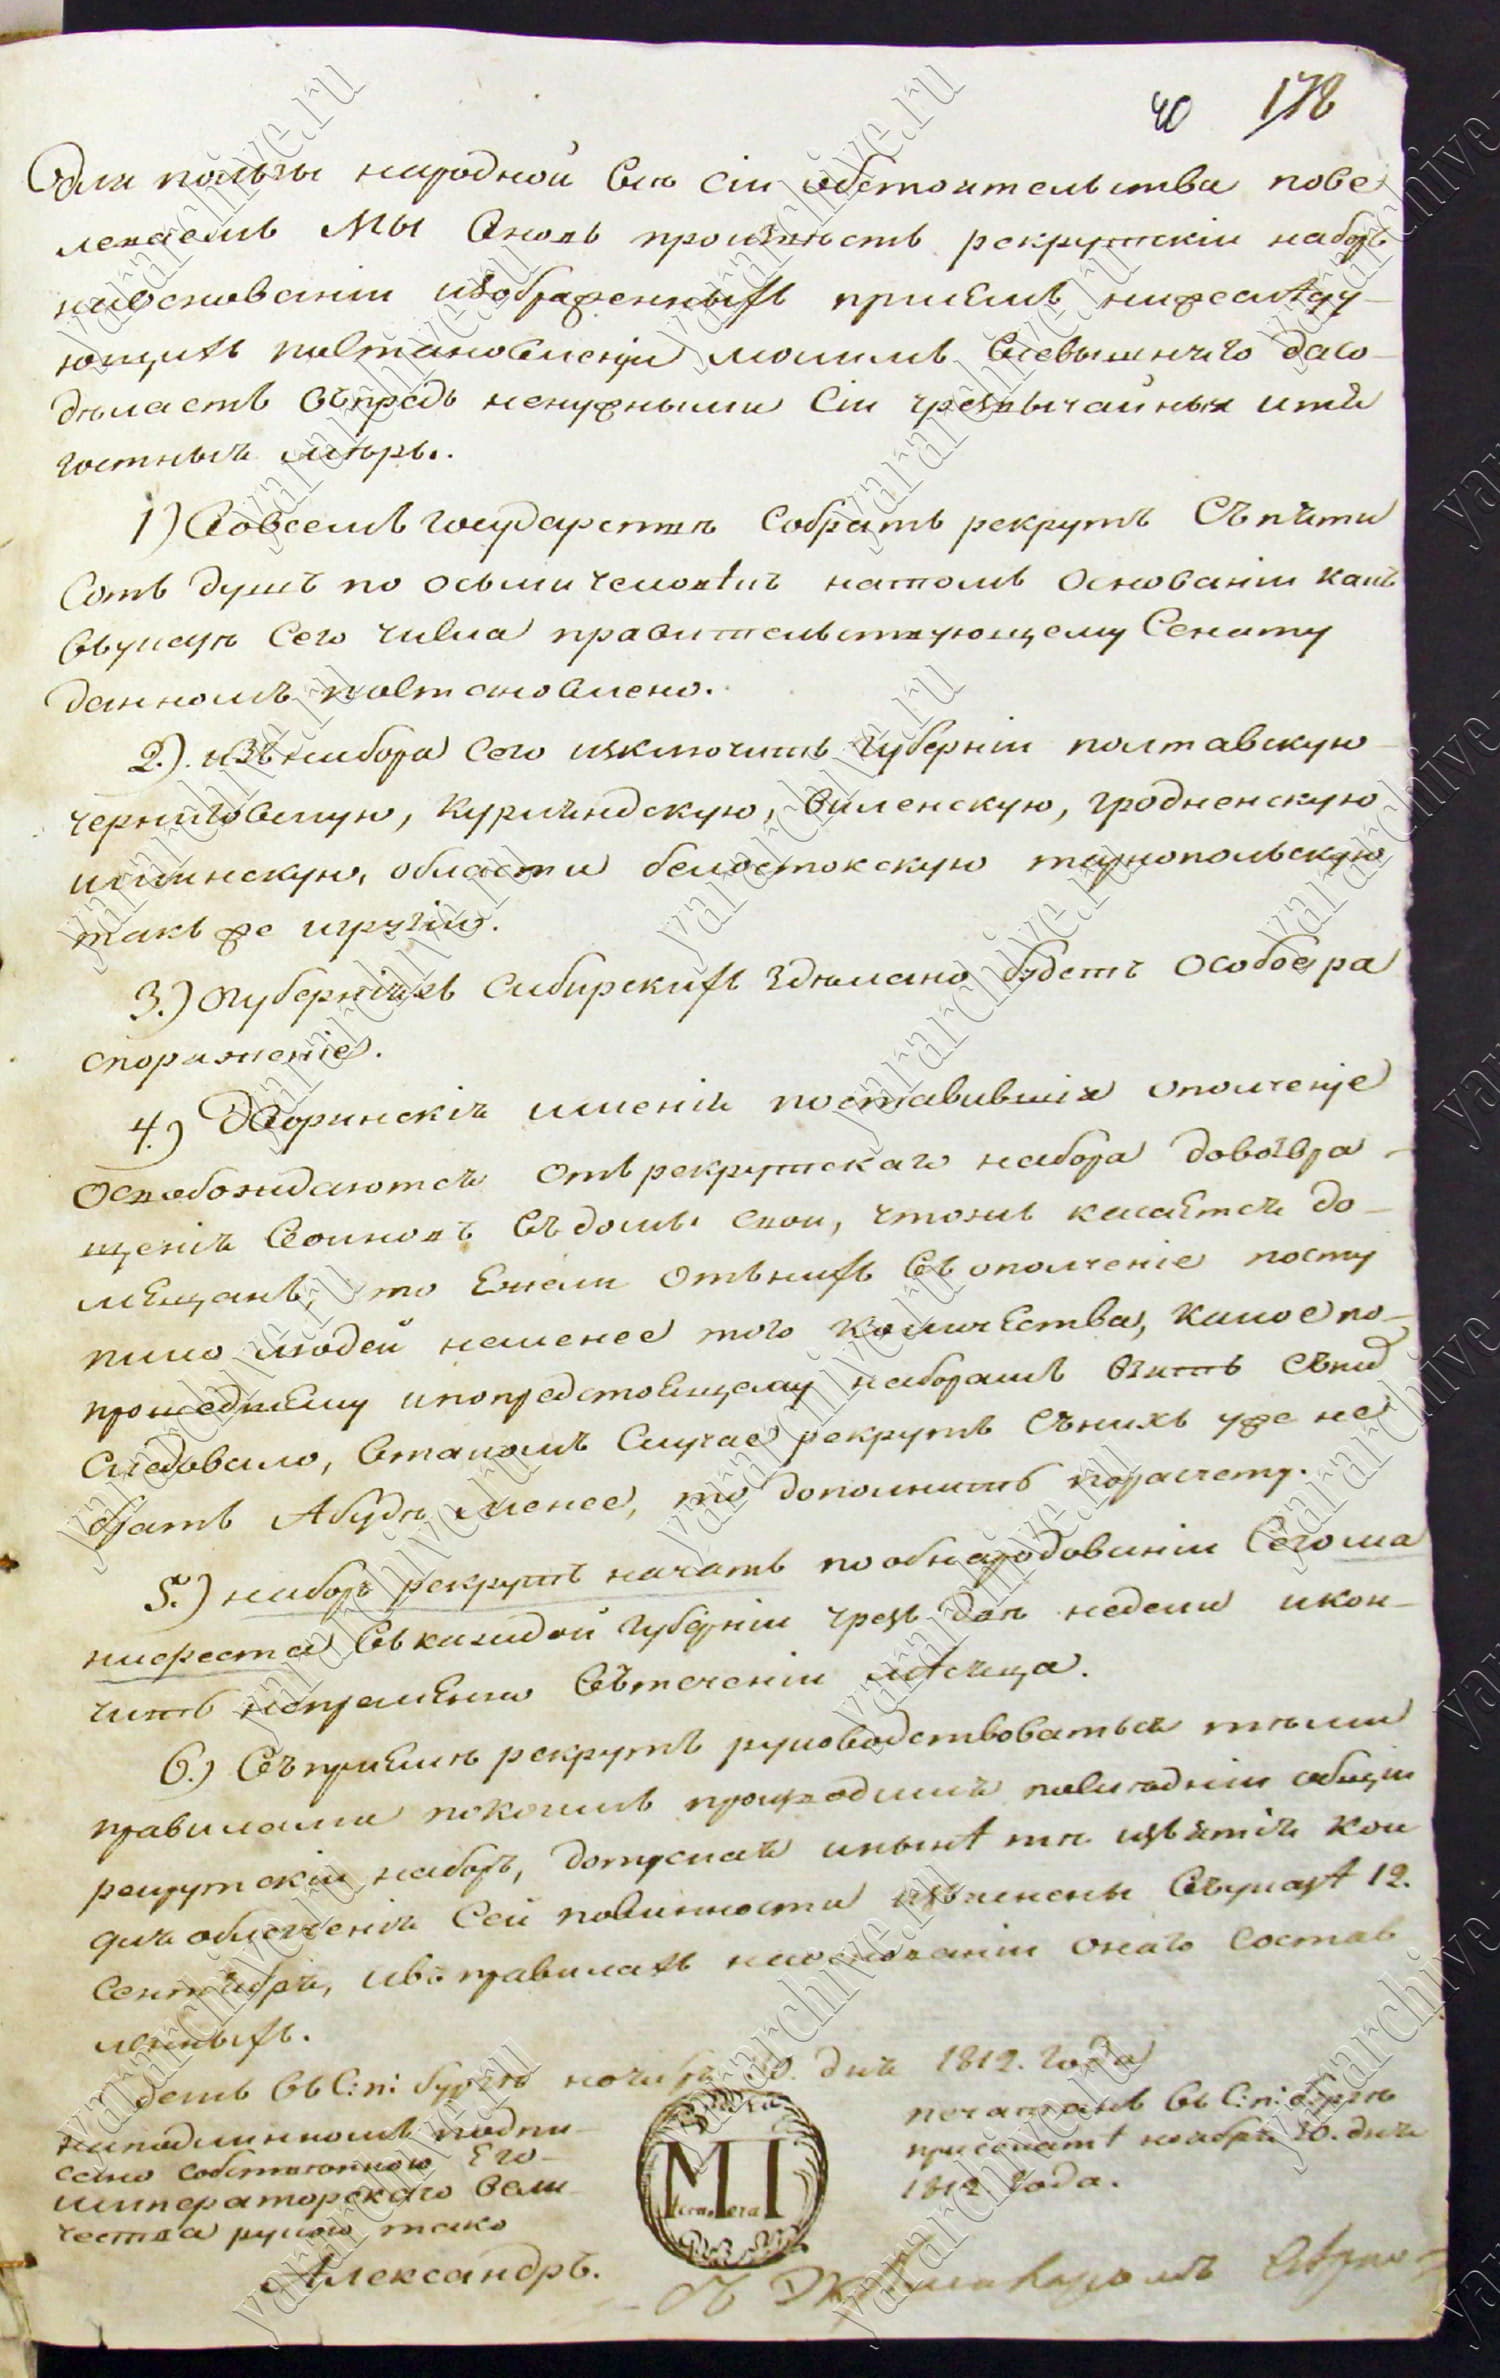 40 178
для пользы народной Всѣ Сіи обстоятельства пове
лѣваемъ Мы Вновь произвѣсть рекрутскій наборъ
наоснованіи изображенныхъ присемъ нижеслѣду-
ющихъ постановленіи молимъ Всевышняго дасо-
дѣластъ Въпредь ненужными Сіи чрезвычайныя итя
гостныя мѣры.
1) Вовсемъ государствѣ Собрать рекрутъ Съпяти
Сотъ душъ по осьми человѣкъ натомъ Основаніи какъ
Въуказѣ Сего числа правительствующему Сенату
данномъ постановлено.
2.) изънабора Сего изключить Губерніи полтавскую
черниговскую, Курляндскую, Виленскую, гродненскую
иминскую, области белостокскую тарнопольскую
такъ же игрузію.
3.) Огуберніяхъ Сибирскихъ Здѣлано будетъ Особое ра
споряженіе.
4.) Дворянскія имѣніи поставившія ополченіе
Освобождаются отъ рекрутскаго набора довозвра-
щенія Воиновъ Въдомы свои, чтожъ касается до-
мещанъ, то Ежели Отънихъ Въ ополченіе посту
пило людей неменее того Количества, какое по-
прошедшему ипопредстоящему наборамъ взять Съних
Следовало, Втакомъ Случае рекрутъ Сънихъ уже не
брать Абудѣ менее, то дополнить порасчету.
5.) наборъ рекрутъ начать пообнародованіи Сего ма
нифеста Въкаждой Губерніи чрезъ двѣ недели икон-
чить непремѣнно Вътеченіи мѣсяца.
6.) Въпріемѣ рекрутъ руководствоваться тѣми
правилами покоимъ произходилъ последніи общіи
рекрутскіи наборъ, допуская инынѣ тѣ изъятія кои
для облегченія Сей повинности изъяснены Въуказѣ 12.
Сентября, ивъ правилахъ наоснованіи онаго Состав
ленныхъ.
данъ Въ С:п: бургѣ ноября 30. дня 1812. года
наподлинномъ подпи-
сано собственною Его-
императорскаго Вели-
чества рукою тако
Александръ.
М
печатанъ Въ С:п:бургѣ
присенатѣ ноября 30. дня
1812 года.